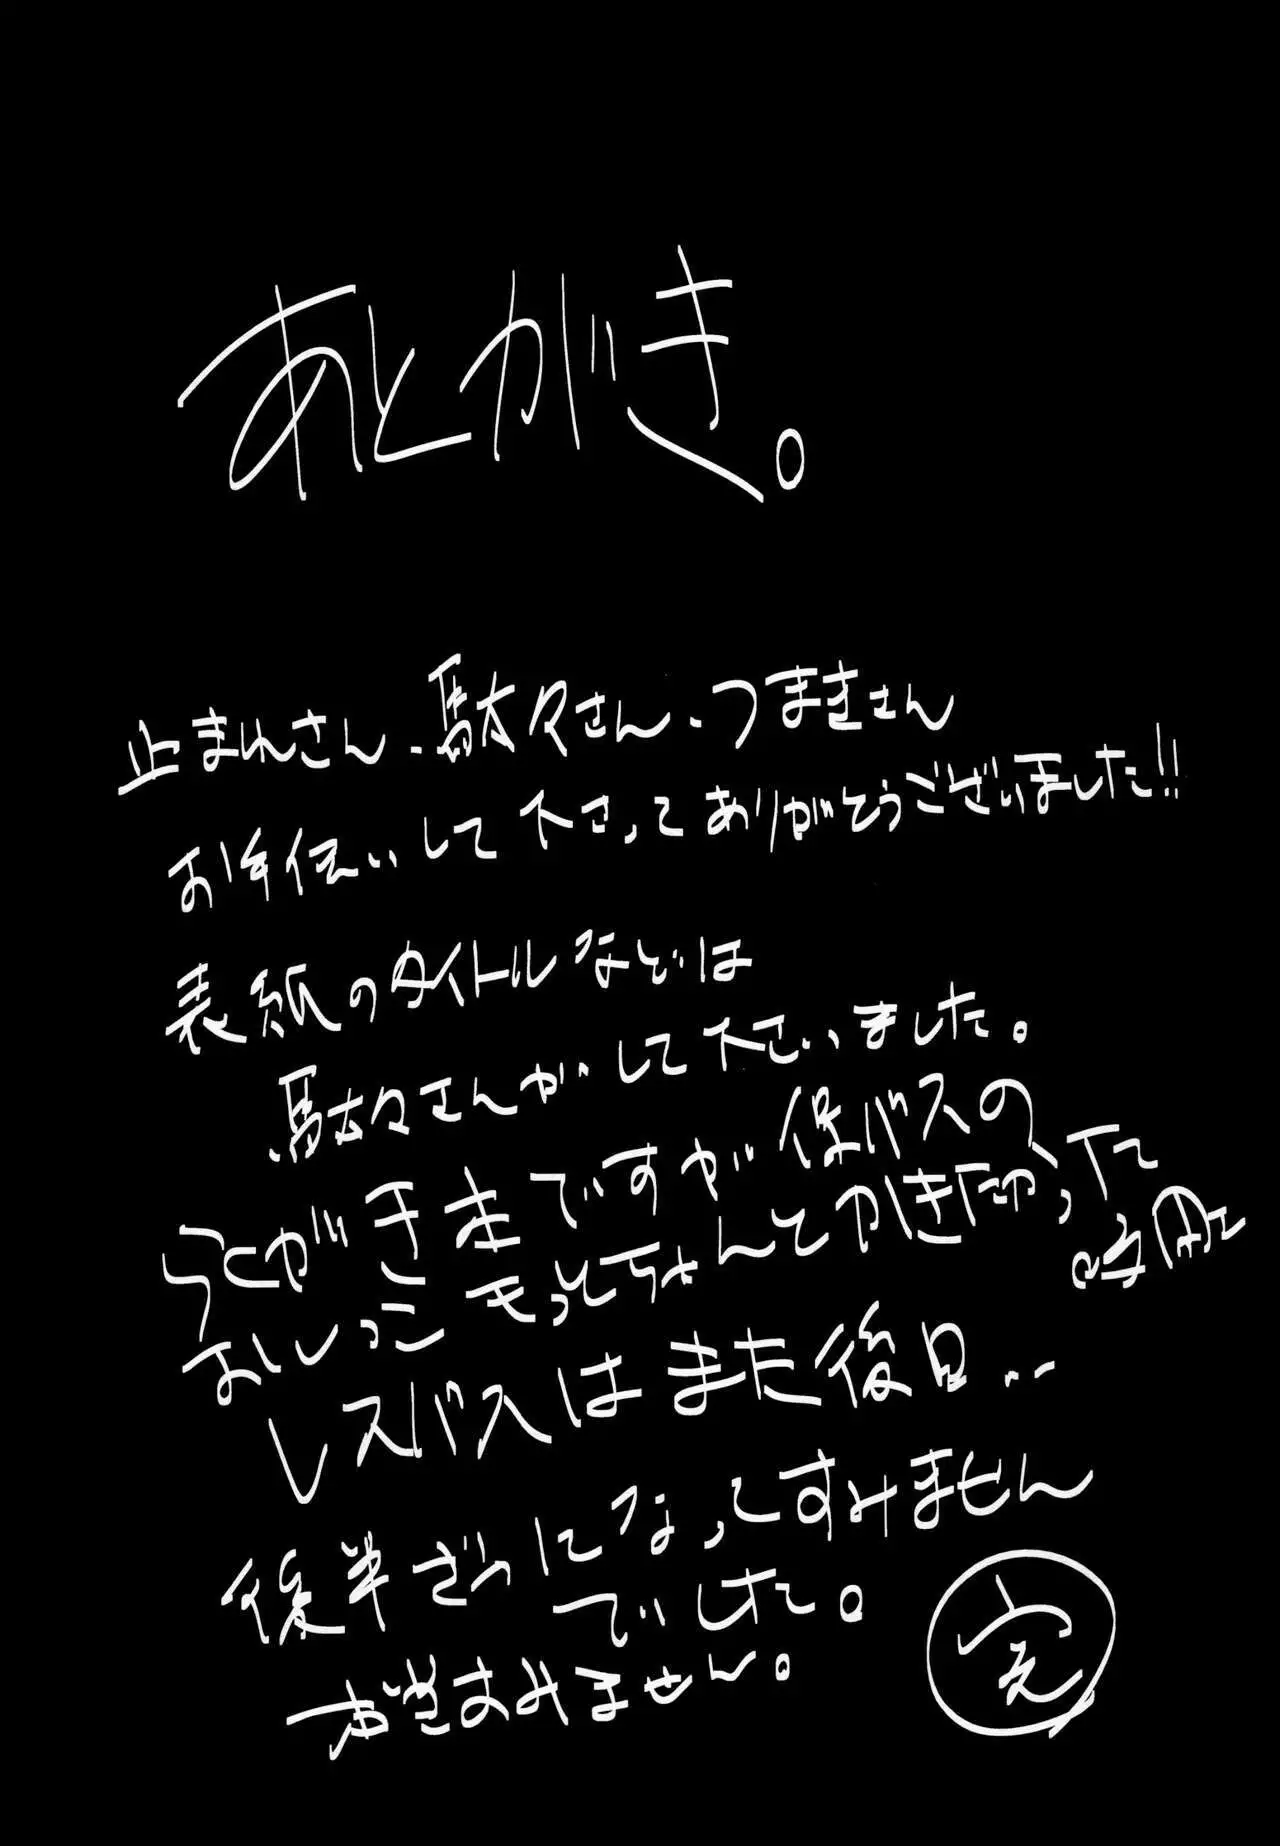 あとがき。
止まれさん、駄々さん、つまきさん
お手伝いして下さってありがとうございました!!
表紙のタイトルなどは
駄々さんがして下さいました。
らくがきまですが保バスの
おしっこもっとちゃんとかきたかった
時間
レズバスはまた後日..
後半ざつになってすみません
でした。
すみません。
完